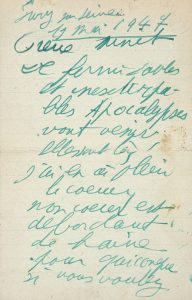 Ivry sur Seine
17 mai 1947
de formidables
et inexterpa
bles Apocalypses
vont venir
elles sont là !
j'ai la
le coeur
nos coeurs est
débordant
de haine
pour quiconque
si vous voulez